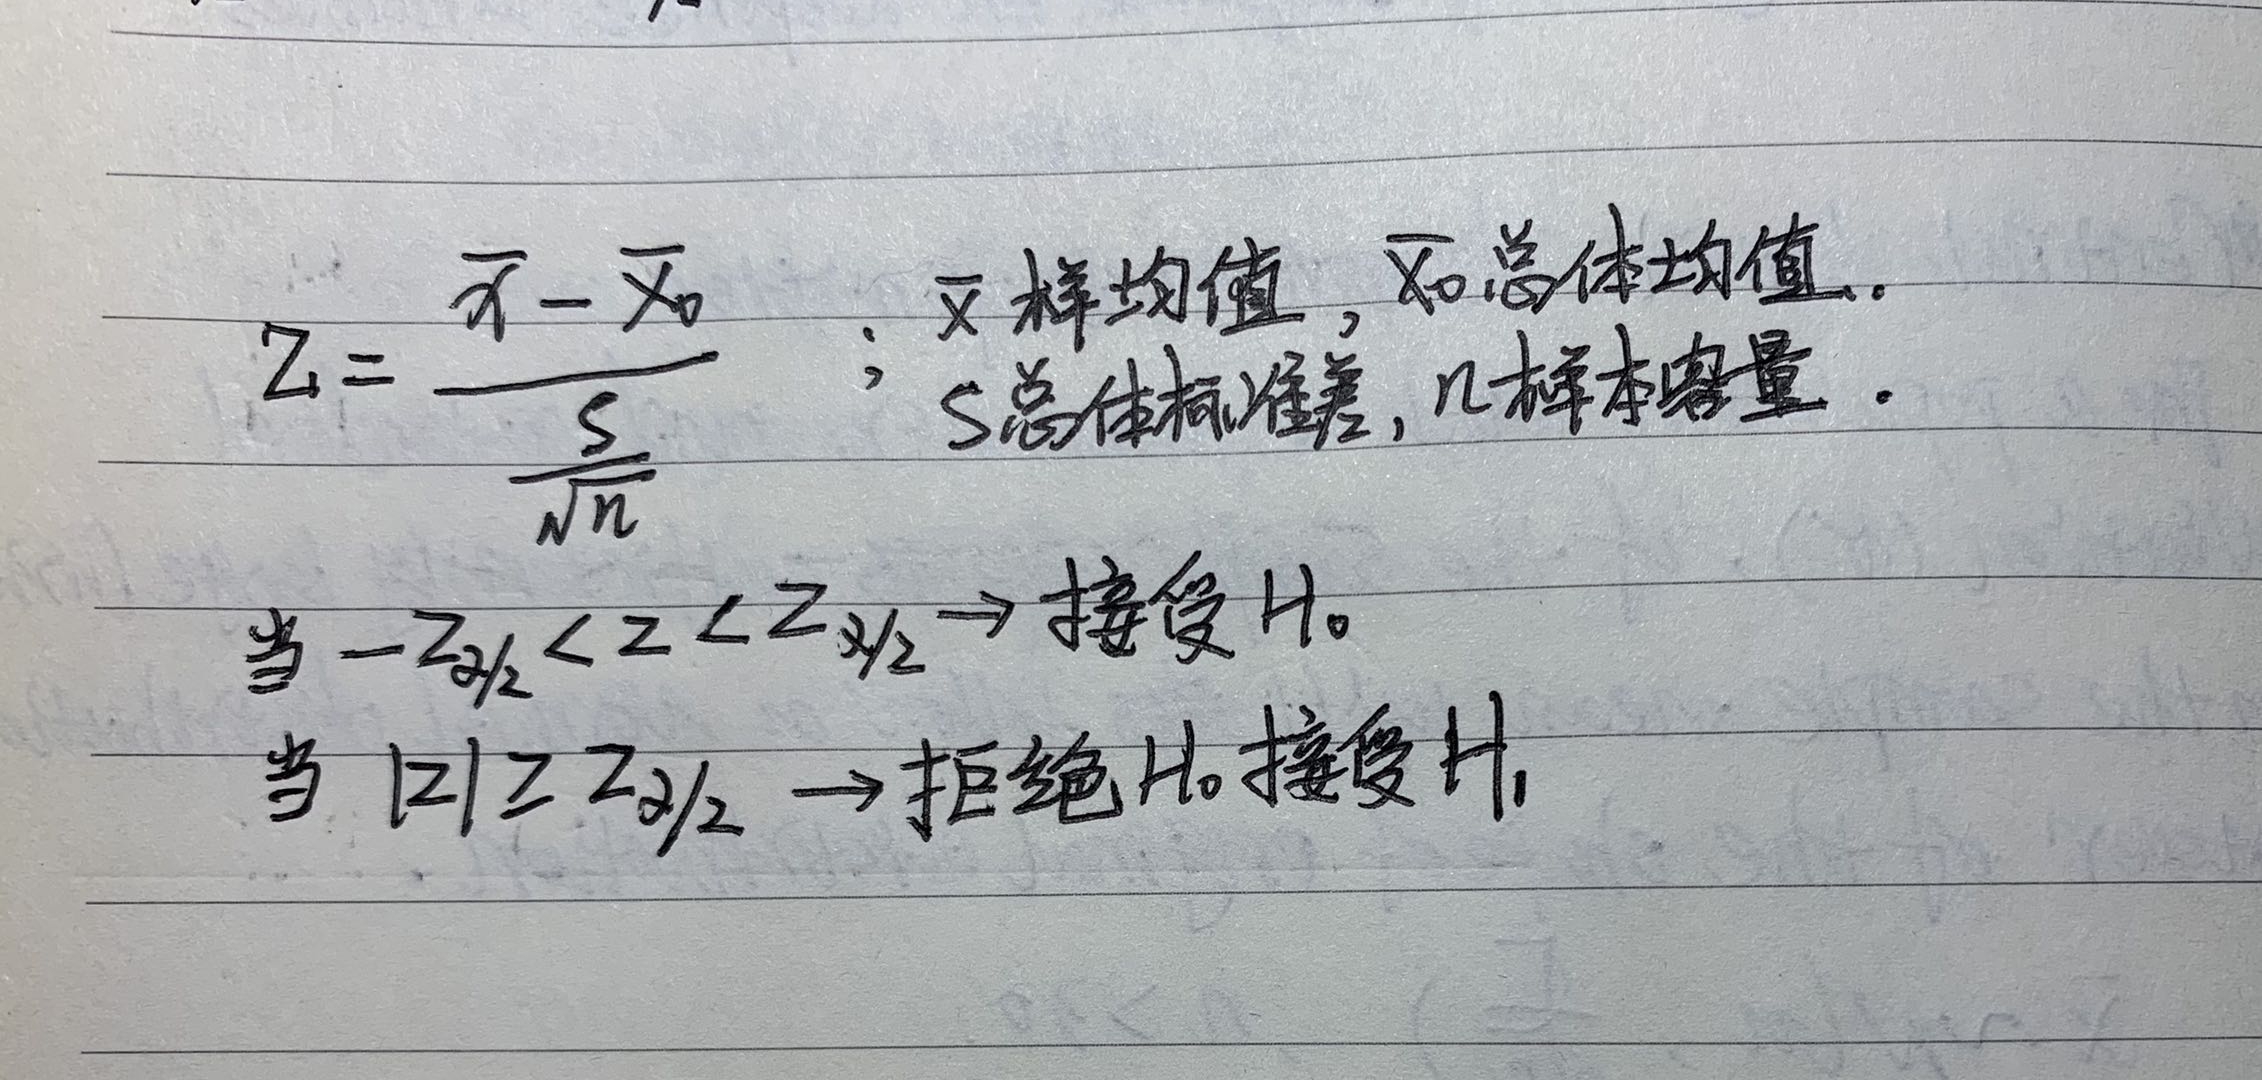 Z = (x̄ - x̄₀) / (S/√n) ; x̄ 样均值, x̄₀ 总体均值.
S总体标准差, n样本容量.
当 -Z_α/2 < Z < Z_α/2 → 接受 H₀
当 |Z| ≥ Z_α/2 → 拒绝 H₀ 接受 H₁